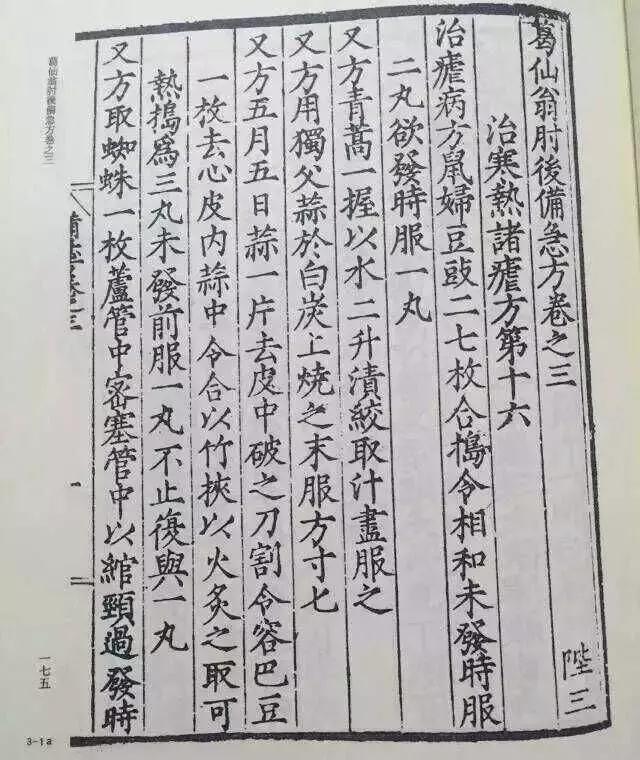 葛仙翁肘後備急方卷之三
陛三
治寒熱諸瘧方第十六
治瘧病方鼠婦豆豉二七枚合搗令相和未發時服
二丸欲發時服一丸
又方青蒿一握以水二升漬絞取汁盡服之
又方用獨父蒜於白炭上燒之末服方寸匕
又方五月五日蒜一片去皮中破之刀割令容巴豆
一枚去心皮內蒜中令合以竹挾以火炙之取可
熱搗為三丸未發前服一丸不止復與一丸
又方取蜘蛛一枚蘆管中密塞管中以綰頸過發時
葛仙翁肘後備急方卷之三
一七五
3-1a